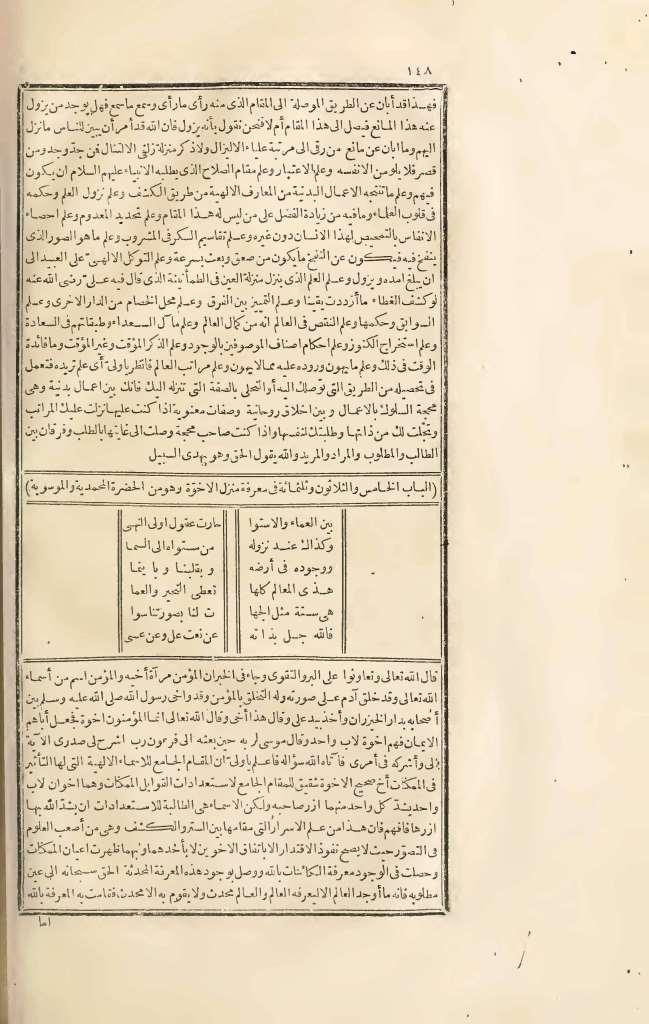 ١٤٨
فهذا قد أبان عن الطريق الموصلة الى المقام الذى منه رأى مارأى وسمع ماسمع فهل يوجد من يزول
عنه هذا المانع فيصل الى هذا المقام أم لا فنحن نقول بأنه يزول فان الله قد أمر أن يبين للناس مانزل
اليهم وما ابان عن مانع من رقى الى مرتبة علياء الا ليزال ولا ذكر منزلة زلفى الا لتنال فمن جد وجد ومن
قصر فلا يلومن الانفسه وعلم الاعتبار وعلم مقام الصلاح الذى يطلبه الانبياء عليهم السلام ان يكون
فيهم وعلم ما تنتجه الاعمال البدنية من المعارف الالهية من طريق الكشف وعلم نزول العلم وحكمه
فى قلوب العلماء وما فيه من زيادة الفضل على من ليس له هذا المقام وعلم تجديد المعدوم وعلم احصاء
الانفاس بالتمحيص لهذا الانسان دون غيره وعلم تقاسيم السكر فى المشروب وعلم ماهو الصور الذى
ينفخ فيه فيكون عن النفخ ما يكون من صعق وبعث بسرعة وعلم التوكل الالهى على العبيد الى
ان يبلغ أمده ويزول وعلم العلم الذى ينزل منزلة العين فى الطمأنينة الذى قال فيه على رضى الله عنه
لو كشف الغطاء ما ازددت يقينا وعلم التمييز بين الفرق وعلم محل الخصام من الدار الاخرى وعلم
السوابق وحكمها وعلم النقص فى العالم انه من كمال العالم وعلم مآل السعداء وطبقاتهم فى السعادة
وعلم استخراج الكنوز وعلم احكام اصناف الموصوفين بالوجود وعلم الذكر المؤقت وغير المؤقت وما فائدة
الوقت فى ذلك وعلم ما يهون وروده عليه مما لا يهون وعلم مراتب العالم فانظر ياولى أى علم تريده فتعمل
فى تحصيله من الطريق التى توصلك اليه أو التحلى بالصفة التى تنزله اليك فانك بين اعمال بدنية وهى
محجة السلوك بالاعمال وبين اخلاق روحانية وصفات معنوية اذا كنت عليها نزلت عليك المراتب
وتجلت لك من ذاتها وطلبتك لنفسها واذا كنت صاحب محجة وصلت الى غايتها بالطلب وفرقان بين
الطالب والمطلوب والمراد والمريد والله يقول الحق وهو يهدى السبيل
(الباب الخامس والثلاثون وثلثمائة فى معرفة منزل الاخوة وهو من الحضرة المحمدية والموسوية)
بين العماء والاستوا حارت عقول اولى النهى
وكذاك عند نزوله من مستواه الى السما
ووجوده فى أرضه وبقلبنا وباينما
هذى المعالم كلها تعطى التحير والعما
هى ستة مثل الجها ت لنا بصورتنا سوا
فالله جل بذاته عن نعت على وعن عسى
قال الله تعالى وتعاونوا على البر والتقوى وجاء فى الخبران المؤمن مرآة أخيه والمؤمن اسم من أسماء
الله تعالى وقد خلق آدم على صورته وله التخلق بالمؤمن وقد واخى رسول الله صلى الله عليه وسلم بين
أصحابه بدار الخيزران وأخذ بيد على وقال هذا أخى وقال الله تعالى انما المؤمنون اخوة فجعل أباهم
الايمان فهم اخوة لاب واحد وقال موسى لربه حين بعثه الى فرعون رب اشرح لى صدرى الآية
الى وأشركه فى أمرى فآتاه الله سؤاله فاعلم ياولى ان المقام الجامع للاسماء الالهية التى لها التأثير
فى الممكنات أخ صحيح الاخوة شقيق للمقام الجامع لاستعدادات القوابل الممكنات وهما اخوان لاب
واحد يشد كل واحد منهما ازر صاحبه ولكن الاسماء هى الطالبة للاستعدادات ان يشد الله بها
ازرها فافهم فان هذا من علم الاسرار التى مقامها بين الستر والكشف وهى من أصعب العلوم
فى التصور حيث لا يصح نفوذ الاقتدار الا باتفاق الاخوين لا بأحدهما وبهما ظهرت اعيان الممكنات
وحصلت فى الوجود معرفة الكائنات بالله ووصل بوجود هذه المعرفة المحدثة الحق سبحانه الى عين
مطلوبه فانه ما أوجد العالم الا ليعرفه العالم والعالم محدث ولا يقوم به الا محدث فقامت به المعرفة بالله
اما